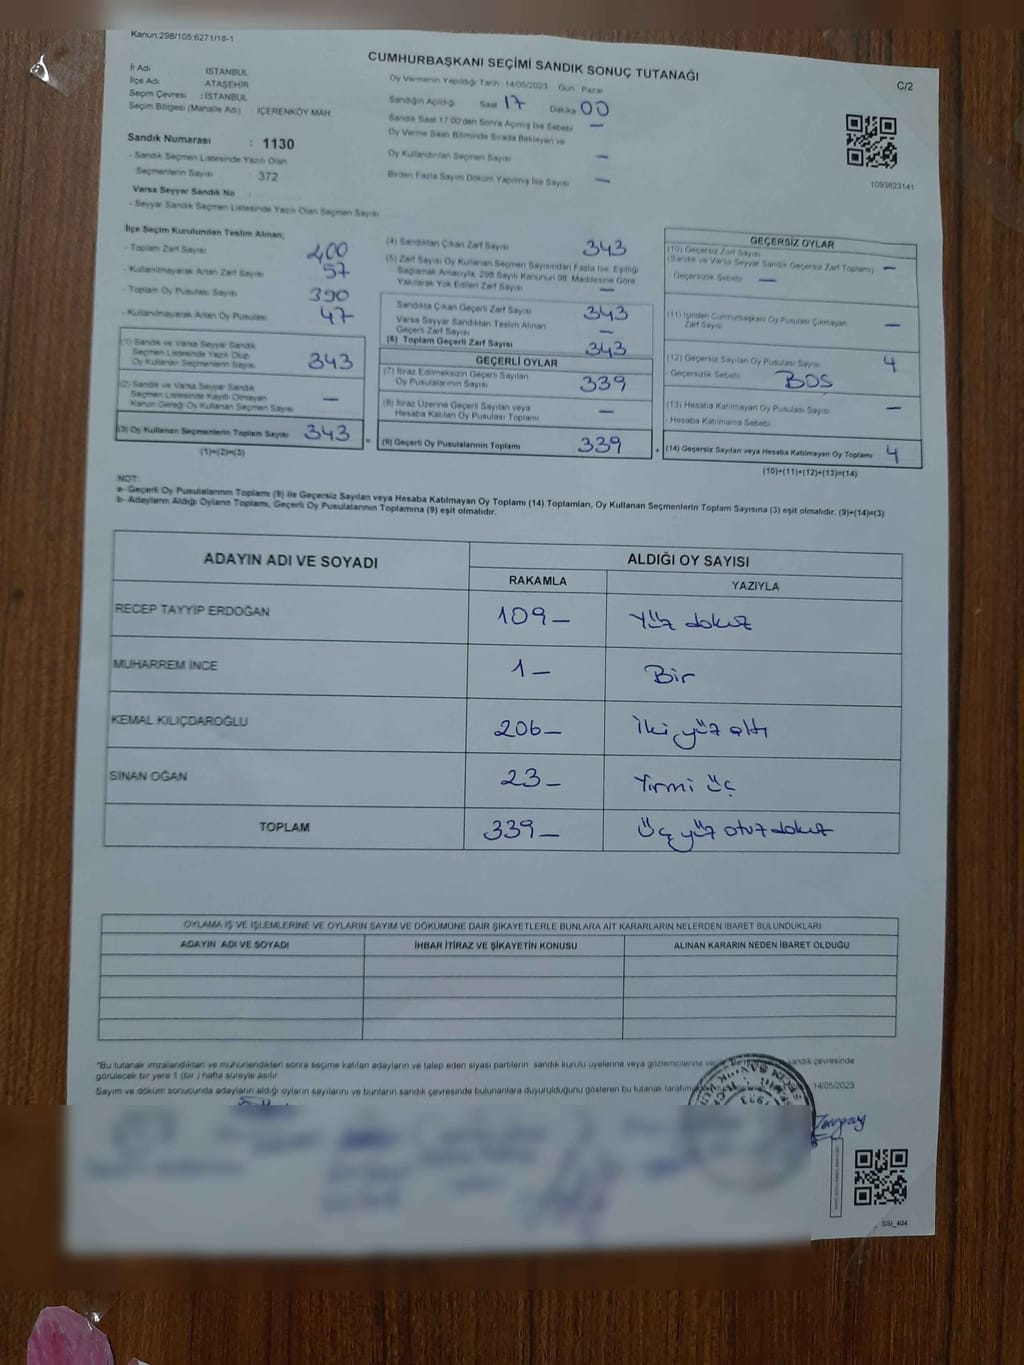 Kanun:298/105;6271/18-1
CUMHURBAŞKANI SEÇİMİ SANDIK SONUÇ TUTANAĞI
C/2
İl Adı : İSTANBUL
İlçe Adı : ATAŞEHİR
Seçim Çevresi : İSTANBUL
Seçim Bölgesi (Mahalle Adı) : İÇERENKÖY MAH
Sandık Numarası : 1130
- Sandık Seçmen Listesinde Yazılı Olan
Seçmenlerin Sayısı : 372
Varsa Seyyar Sandık No :
- Seyyar Sandık Seçmen Listesinde Yazılı Olan Seçmen Sayısı
Oy Vermenin Yapıldığı Tarih 14/05/2023 Gün Pazar
Sandığın Açıldığı Saat 17 Dakika 00
Sandık Saat 17:00'den Sonra Açılmış İse Sebebi —
Oy Verme Saati Bitiminde Sırada Bekleyen ve
Oy Kullandırılan Seçmen Sayısı —
Birden Fazla Sayım Döküm Yapılmış İse Sayısı —
1093823141
İlçe Seçim Kurulundan Teslim Alınan;
- Toplam Zarf Sayısı 400
- Kullanılmayarak Artan Zarf Sayısı 57
- Toplam Oy Pusulası Sayısı 390
- Kullanılmayarak Artan Oy Pusulası 47
(1) Sandık ve Varsa Seyyar Sandık
Seçmen Listesinde Yazılı Olup
Oy Kullanan Seçmenlerin Sayısı 343
(2) Sandık ve Varsa Seyyar Sandık
Seçmen Listesinde Kaydı Olmayan
Kanun Gereği Oy Kullanan Seçmen Sayısı —
(3) Oy Kullanan Seçmenlerin Toplam Sayısı 343
(1)+(2)=(3)
(4) Sandıktan Çıkan Zarf Sayısı 343
(5) Zarf Sayısı Oy Kullanan Seçmen Sayısından Fazla İse, Eşitliği
Sağlamak Amacıyla, 298 Sayılı Kanunun 98. Maddesine Göre
Yakılarak Yok Edilen Zarf Sayısı —
Sandıkta Çıkan Geçerli Zarf Sayısı 343
Varsa Seyyar Sandıktan Teslim Alınan
Geçerli Zarf Sayısı —
(6) Toplam Geçerli Zarf Sayısı 343
GEÇERLİ OYLAR
(7) İtiraz Edilmeksizin Geçerli Sayılan
Oy Pusulalarının Sayısı 339
(8) İtiraz Üzerine Geçerli Sayılan veya
Hesaba Katılan Oy Pusulası Toplamı —
= (9) Geçerli Oy Pusulalarının Toplamı 339
GEÇERSİZ OYLAR
(10) Geçersiz Zarf Sayısı
(Sandık ve Varsa Seyyar Sandık Geçersiz Zarf Toplamı) —
- Geçersizlik Sebebi —
(11) İçinden Cumhurbaşkanı Oy Pusulası Çıkmayan
Zarf Sayısı —
(12) Geçersiz Sayılan Oy Pusulası Sayısı 4
- Geçersizlik Sebebi BOŞ
(13) Hesaba Katılmayan Oy Pusulası Sayısı —
- Hesaba Katılmama Sebebi
+ (14) Geçersiz Sayılan veya Hesaba Katılmayan Oy Toplamı 4
(10)+(11)+(12)+(13)=(14)
NOT:
a- Geçerli Oy Pusulalarının Toplamı (9) ile Geçersiz Sayılan veya Hesaba Katılmayan Oy Toplamı (14) Toplamları, Oy Kullanan Seçmenlerin Toplam Sayısına (3) eşit olmalıdır. (9)+(14)=(3)
b- Adayların Aldığı Oyların Toplamı, Geçerli Oy Pusulalarının Toplamına (9) eşit olmalıdır.
ADAYIN ADI VE SOYADI ALDIĞI OY SAYISI
RAKAMLA YAZIYLA
RECEP TAYYİP ERDOĞAN 109— Yüz dokuz
MUHARREM İNCE 1— Bir
KEMAL KILIÇDAROĞLU 206— İki yüz altı
SİNAN OĞAN 23— Yirmi üç
TOPLAM 339— Üç yüz otuz dokuz
OYLAMA İŞ VE İŞLEMLERİNE VE OYLARIN SAYIM VE DÖKÜMÜNE DAİR ŞİKAYETLERLE BUNLARA AİT KARARLARIN NELERDEN İBARET BULUNDUKLARI
ADAYIN ADI VE SOYADI İHBAR İTİRAZ VE ŞİKAYETİN KONUSU ALINAN KARARIN NEDEN İBARET OLDUĞU
*Bu tutanak imzalandıktan ve mühürlendikten sonra seçime katılan adayların ve talep eden siyasi partilerin sandık kurulu üyelerine veya gözlemcilerine sandık çevresinde
görülecek bir yere 1 (bir) hafta süreyle asılır
Sayım ve döküm sonucunda adayların aldığı oyların sayılarını ve bunların sandık çevresinde bulunanlara duyurulduğunu gösteren bu tutanak 14/05/2023
SSİ_404